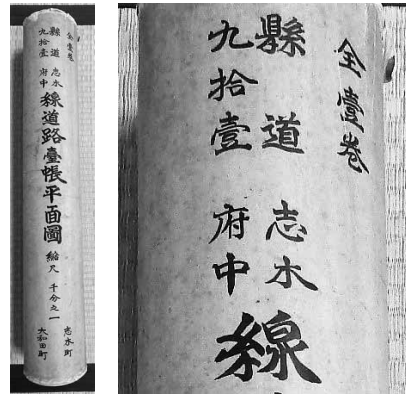 全壹巻
縣道
九拾壹
志木
府中
線道路臺帳平面圖
縮尺 千分之一
志木町
大和田町
全壹巻
縣道
九拾壹
志木
府中
線